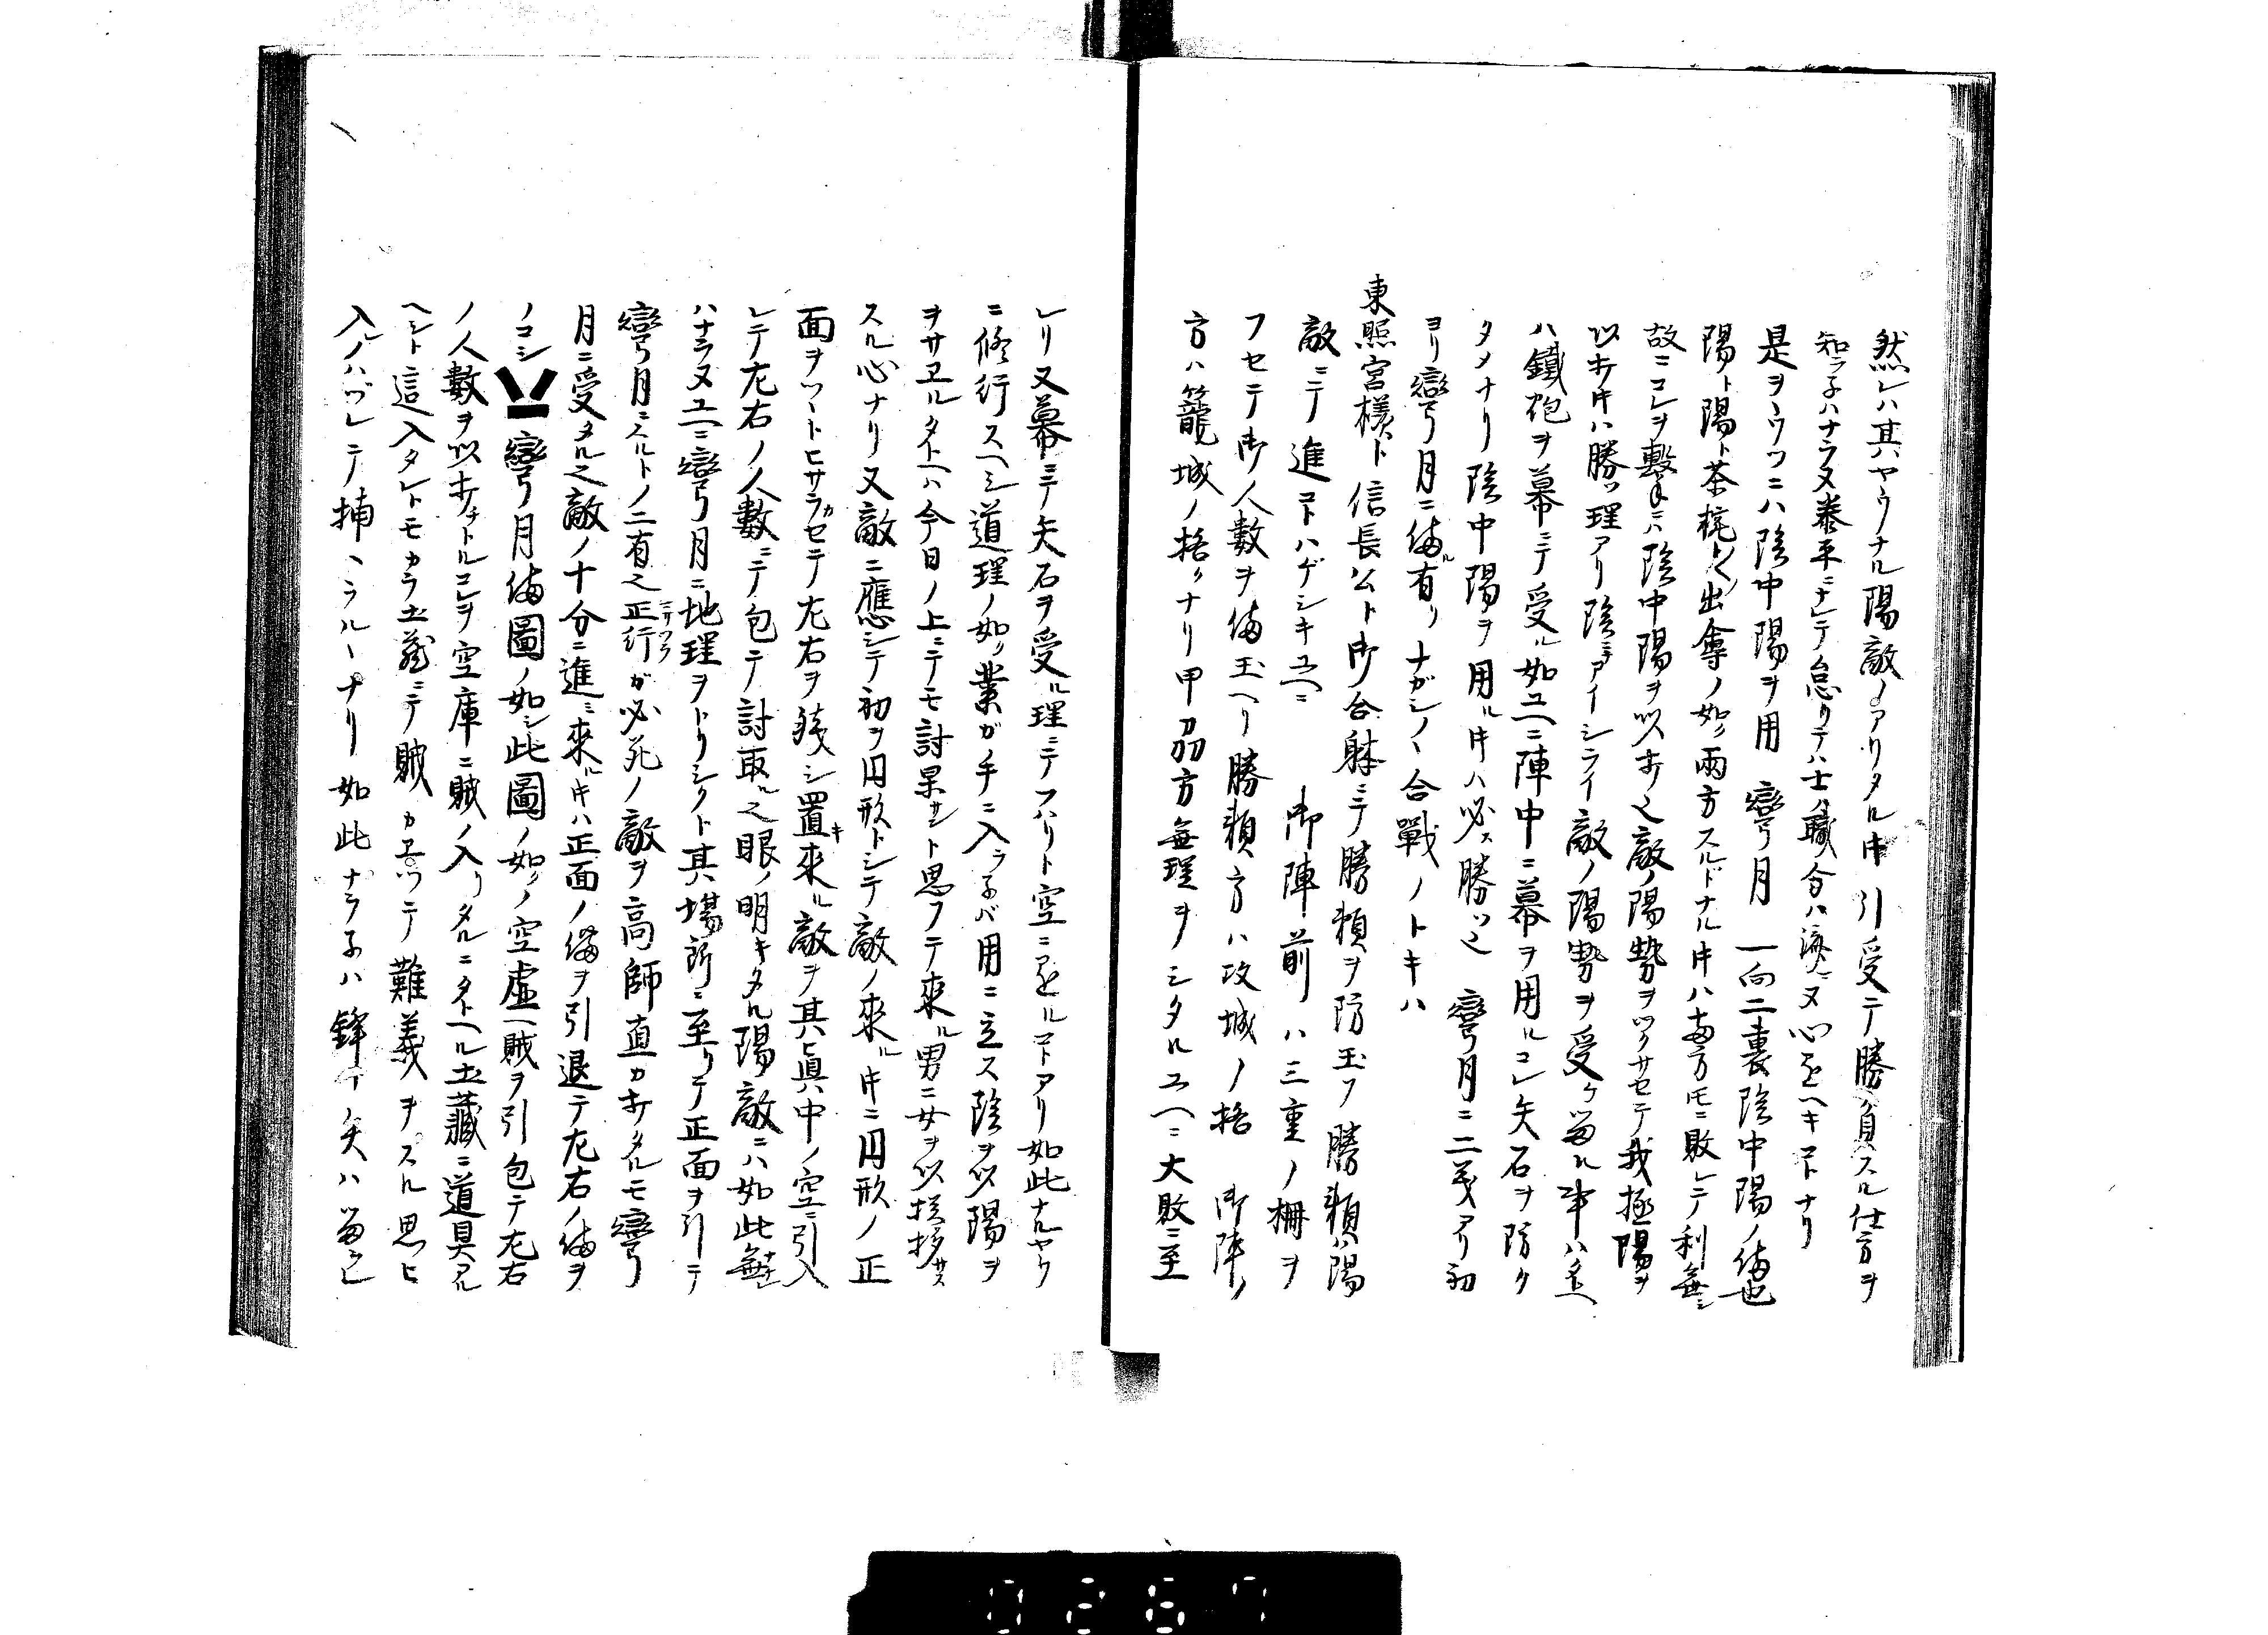 然レハ其ヤウナル陽敵ノアリタル中引受テ勝負スル仕方ヲ
知ラ子ハナラヌ泰平ニナレテ怠リテハ士ノ職分ハ濟マヌ心定ヘキコトナリ
是ヲウツニハ陰中陽ヲ用彎月一向二裏陰中陽ノ備也
陽ト陽ト茶椀〳〵出會ノ如ク兩方スルドナル𪜈ハ両方𪜈ニ敗レテ利無シ
故ニコレヲ擊ニハ陰中陽ヲ以ホク之敵ノ陽勢ヲツクサセテ我極陽ヲ
以ホク𪜈ハ勝ツ理アリ陰ニテアイシライ敵ノ陽勢ヲ受ケ留ル事ハ先ヘ
ハ鐵砲ヲ幕ニテ受ル如ユヘニ陣中ニ幕ヲ用ルコレ矢石ヲ防ク
タメナリ陰中陽ヲ用ル𪜈ハ必ス勝ツ之彎月ニ二義アリ初
ヨリ彎月ニ備ル有リナガシノヽ合戰ノトキハ
東照宮樣ト信長公ト御合躰ニテ勝頼ヲ防玉フ勝頼ハ陽
敵ニテ進コトハゲシキユヘニ御陣前ハ三重ノ柵ヲ
フセテ御人數ヲ備玉ヘリ勝頼方ハ攻城ノ格御陣ノ
方ハ籠城ノ格クナリ甲刕方無理ヲシタルユヘニ大敗ニ至
レリ又幕ニテ矢石ヲ受ル理ニテフハリト空ニ定ルコトアリ如此ナルヤウ
ニ修行スヘシ道理ノ如ク業ガ手ニ入ラ子バ用ニ立ス陰ヲ以陽ヲ
ヲサヱルタトヘハ今日ノ上ニテモ討果サント思フテ來ル男ニ女ヲ以挨拶サス
スル心ナリ又敵ニ應シテ初ヲ円形トシテ敵ノ來ル𪜈ニ円形ノ正
面ヲツヽトヒサラカセテ左右ヲ殘シ置キ來ル敵ヲ其眞中ノ空ニ引入
レテ左右ノ人數ニテ包テ討取ル之眼ノ明キタル陽敵ニハ如此無テ
ハナラヌユヘニ彎月ニ地理ヲトリシクト其場所ニ至リテ正面ヲ引テ
彎月ニスルトノ二有之正行ガ必死ノ敵ヲ高師直カホクタルモ彎
月ニ受タル之敵ノ十分ニ進ミ來ル𪜈ハ正面ノ備ヲ引退テ左右ノ備ヲ
ノコシ彎月備圖ノ如シ此圖ノ如クノ空虛ヘ賊ヲ引包テ左右
ノ人數ヲ以ホチトルコレヲ空庫ニ賊ノ入リタルニタトヘル土藏ニ道具アル
ヘシト這入タレトモカラ土藏ニテ賊カヱツテ難義ヲスル思ヒ
入ルノハヅレテ捕ヘラルヽナリ如此ナラ子ハ鋒ノ矢ハ留ラレ